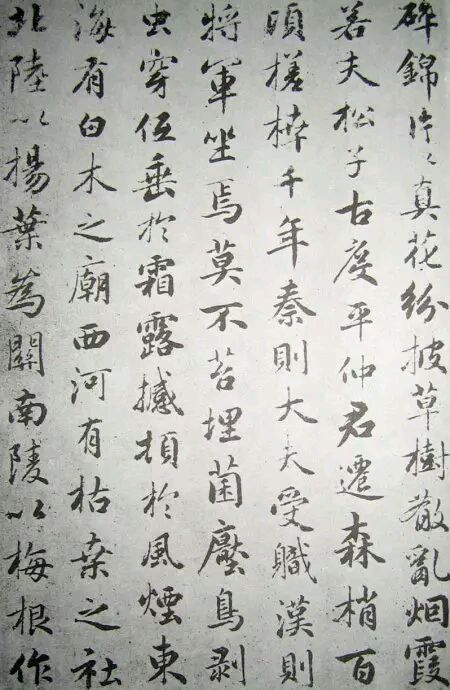 碎錦片々真花紛披草樹散亂烟霞
若夫松子古度平仲君遷森梢百
頃槎枿千年秦則大夫受職漢則
將軍坐焉莫不苔埋菌壓鳥剥
虫穿低垂於霜露撼頓於風煙東
海有白木之廟西河有枯桑之社
北陸以楊葉為關南陵以梅根作